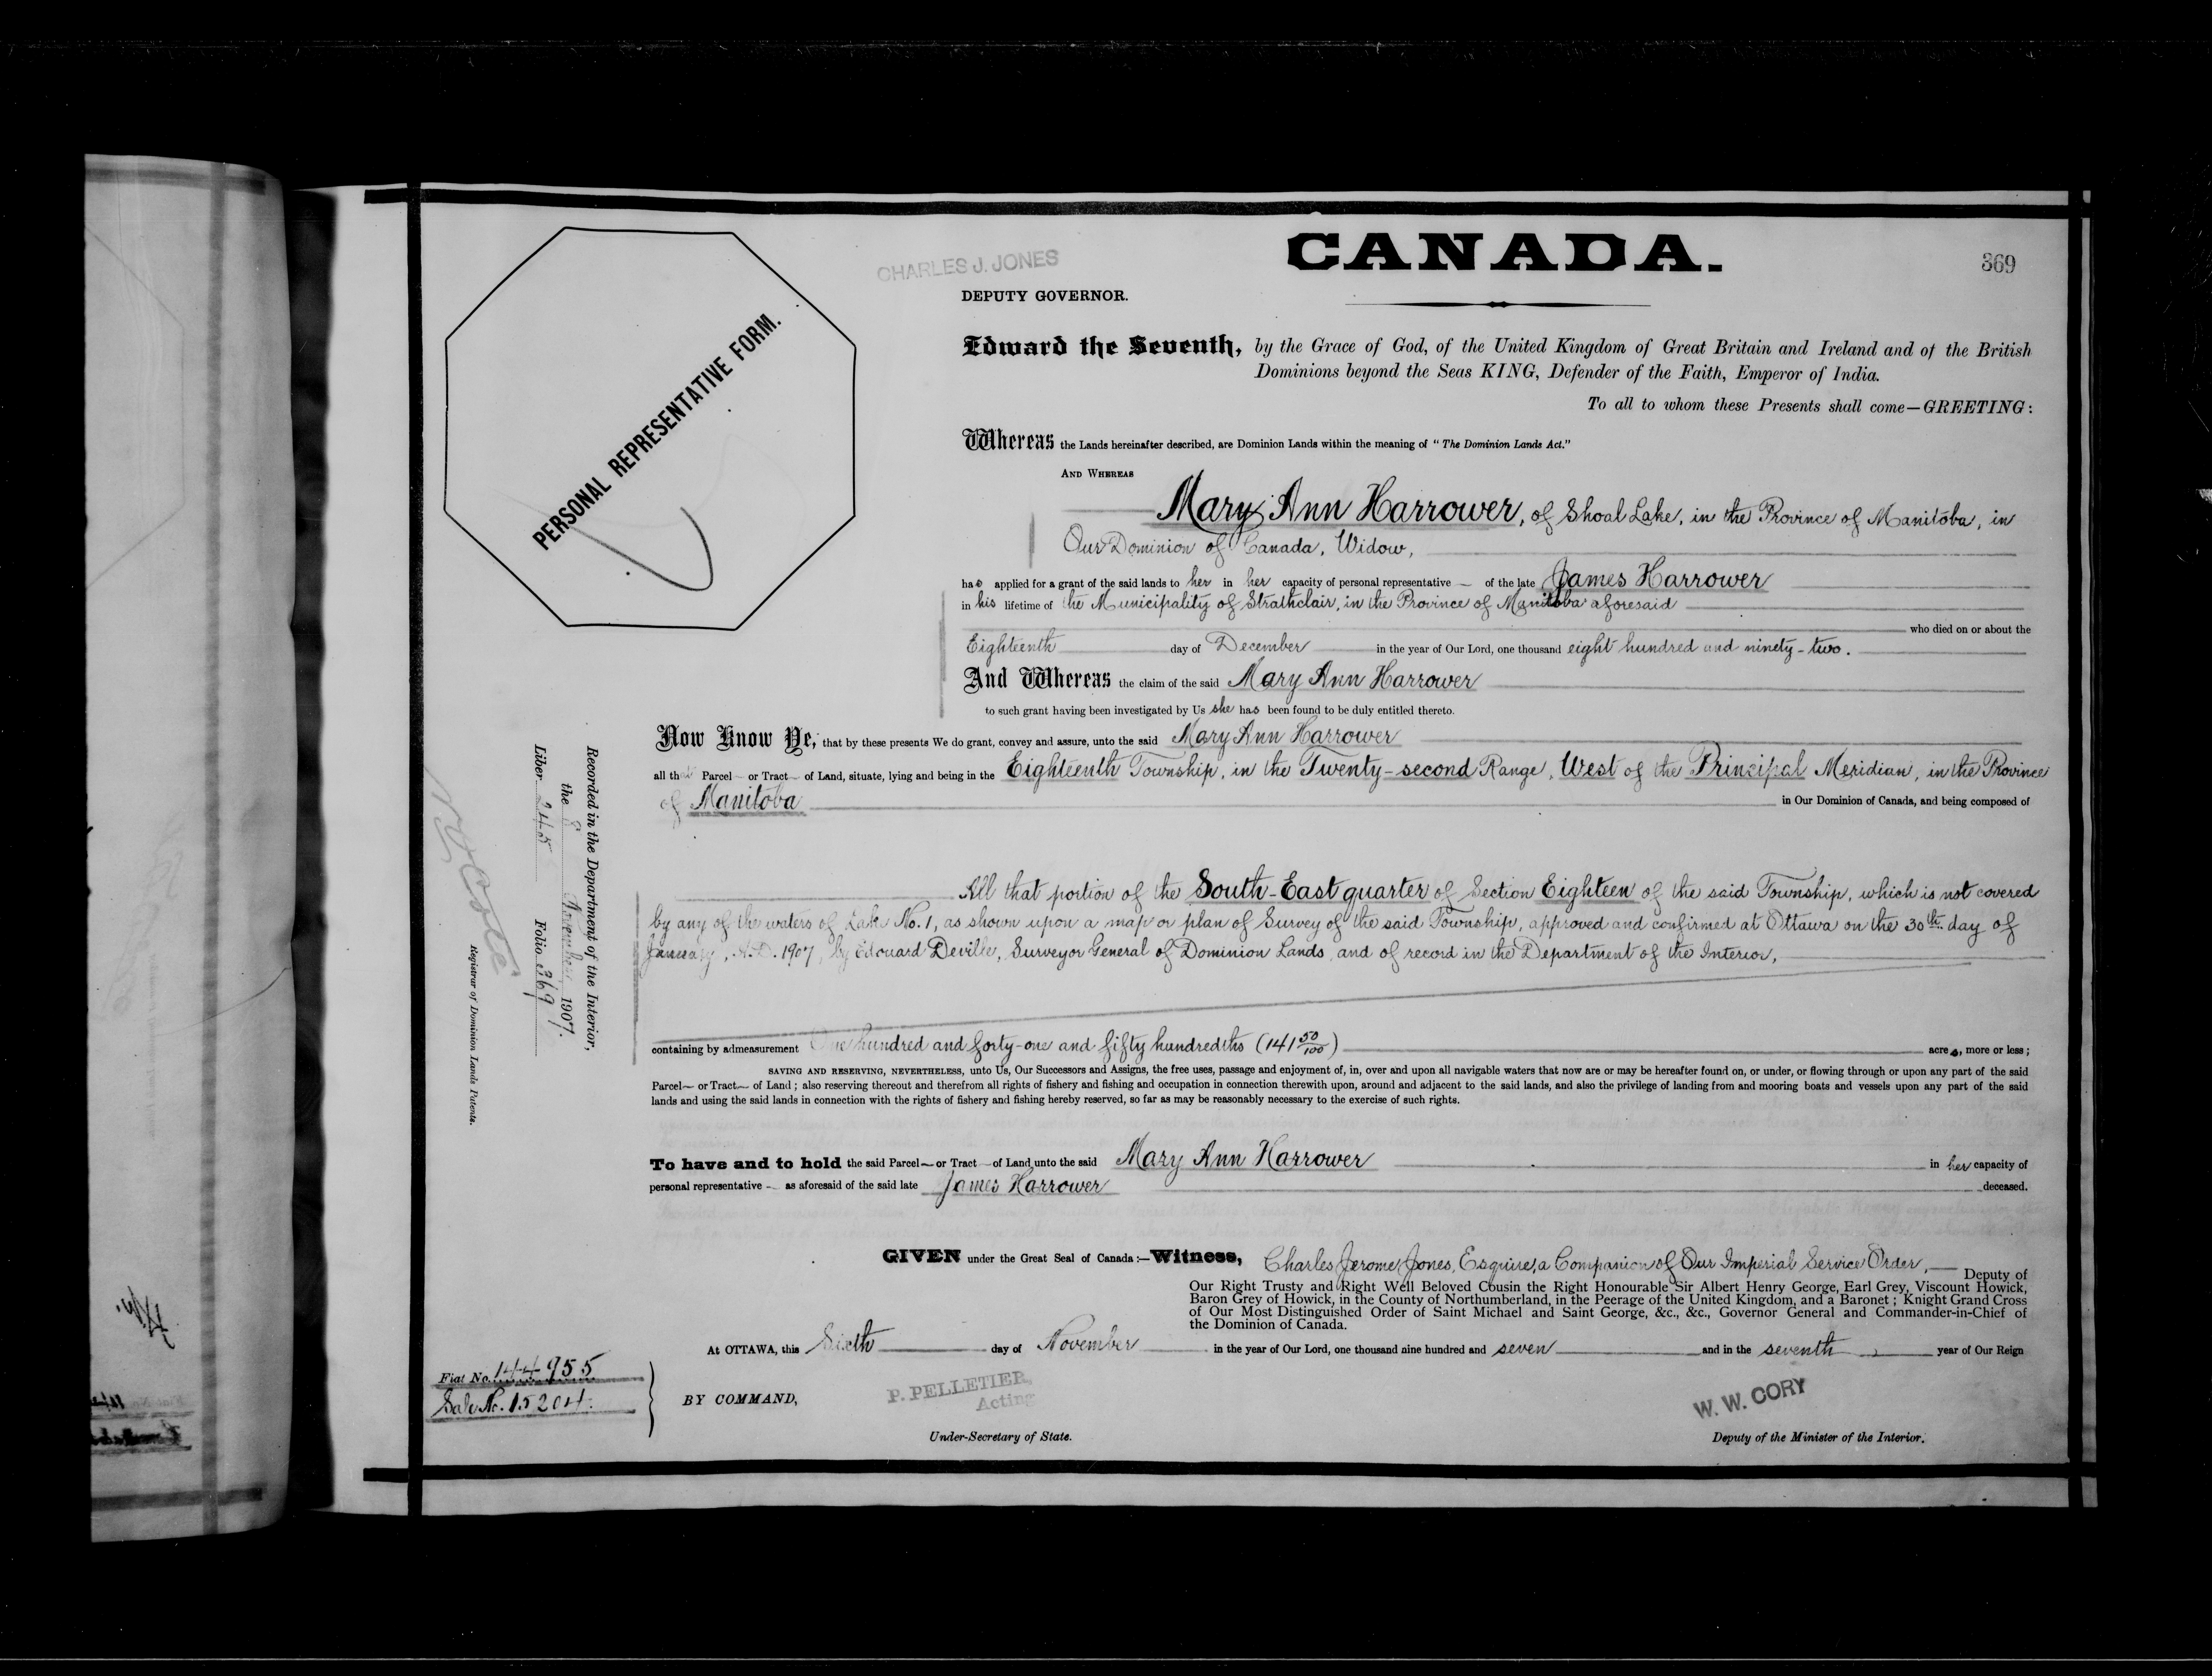 CANADA.
369
CHARLES J. JONES
DEPUTY GOVERNOR.
PERSONAL REPRESENTATIVE FORM.
Edward the Seventh, by the Grace of God, of the United Kingdom of Great Britain and Ireland and of the British
Dominions beyond the Seas KING, Defender of the Faith, Emperor of India.
To all to whom these Presents shall come—GREETING:
Whereas the Lands hereinafter described, are Dominion Lands within the meaning of "The Dominion Lands Act."
AND WHEREAS
Mary Ann Harrower, of Shoal Lake, in the Province of Manitoba, in
Our Dominion of Canada, Widow,
has applied for a grant of the said lands to her in her capacity of personal representative of the late James Harrower
in his lifetime of the Municipality of Strathclair, in the Province of Manitoba aforesaid
who died on or about the
Eighteenth day of December in the year of Our Lord, one thousand eight hundred and ninety-two.
And Whereas the claim of the said Mary Ann Harrower
to such grant having been investigated by Us she has been found to be duly entitled thereto.
Now Know Ye, that by these presents We do grant, convey and assure, unto the said Mary Ann Harrower
all that Parcel or Tract of Land, situate, lying and being in the Eighteenth Township, in the Twenty-second Range, West of the Principal Meridian, in the Province
of Manitoba in Our Dominion of Canada, and being composed of
All that portion of the South-East quarter of Section Eighteen of the said Township, which is not covered
by any of the waters of Lake No. 1, as shown upon a map or plan of Survey of the said Township, approved and confirmed at Ottawa on the 30th day of
January, A.D. 1907, by Edouard Deville, Surveyor General of Dominion Lands, and of record in the Department of the Interior,
containing by admeasurement One hundred and forty-one and fifty hundredths (141 50/100) acres, more or less;
SAVING AND RESERVING, NEVERTHELESS, unto Us, Our Successors and Assigns, the free uses, passage and enjoyment of, in, over and upon all navigable waters that now are or may be hereafter found on, or under, or flowing through or upon any part of the said
Parcel or Tract of Land; also reserving thereout and therefrom all rights of fishery and fishing and occupation in connection therewith upon, around and adjacent to the said lands, and also the privilege of landing from and mooring boats and vessels upon any part of the said
lands and using the said lands in connection with the rights of fishery and fishing hereby reserved, so far as may be reasonably necessary to the exercise of such rights.
To have and to hold the said Parcel or Tract of Land, unto the said Mary Ann Harrower in her capacity of
personal representative as aforesaid of the said late James Harrower deceased.
GIVEN under the Great Seal of Canada:—Witness, Charles Jerome Jones, Esquire, a Companion of Our Imperial Service Order, Deputy of
Our Right Trusty and Right Well Beloved Cousin the Right Honourable Sir Albert Henry George, Earl Grey, Viscount Howick,
Baron Grey of Howick, in the County of Northumberland, in the Peerage of the United Kingdom, and a Baronet; Knight Grand Cross
of Our Most Distinguished Order of Saint Michael and Saint George, &c., &c., Governor General and Commander-in-Chief of
the Dominion of Canada.
At OTTAWA, this Sixth day of November in the year of Our Lord, one thousand nine hundred and seven and in the seventh year of Our Reign
BY COMMAND,
P. PELLETIER,
Acting
Under-Secretary of State.
W. W. CORY
Deputy of the Minister of the Interior.
Fiat No. 144955
Sale No. 15204.
Recorded in the Department of the Interior,
the 8 November 1907.
Liber 245 Folio 369
Registrar of Dominion Lands Patents.